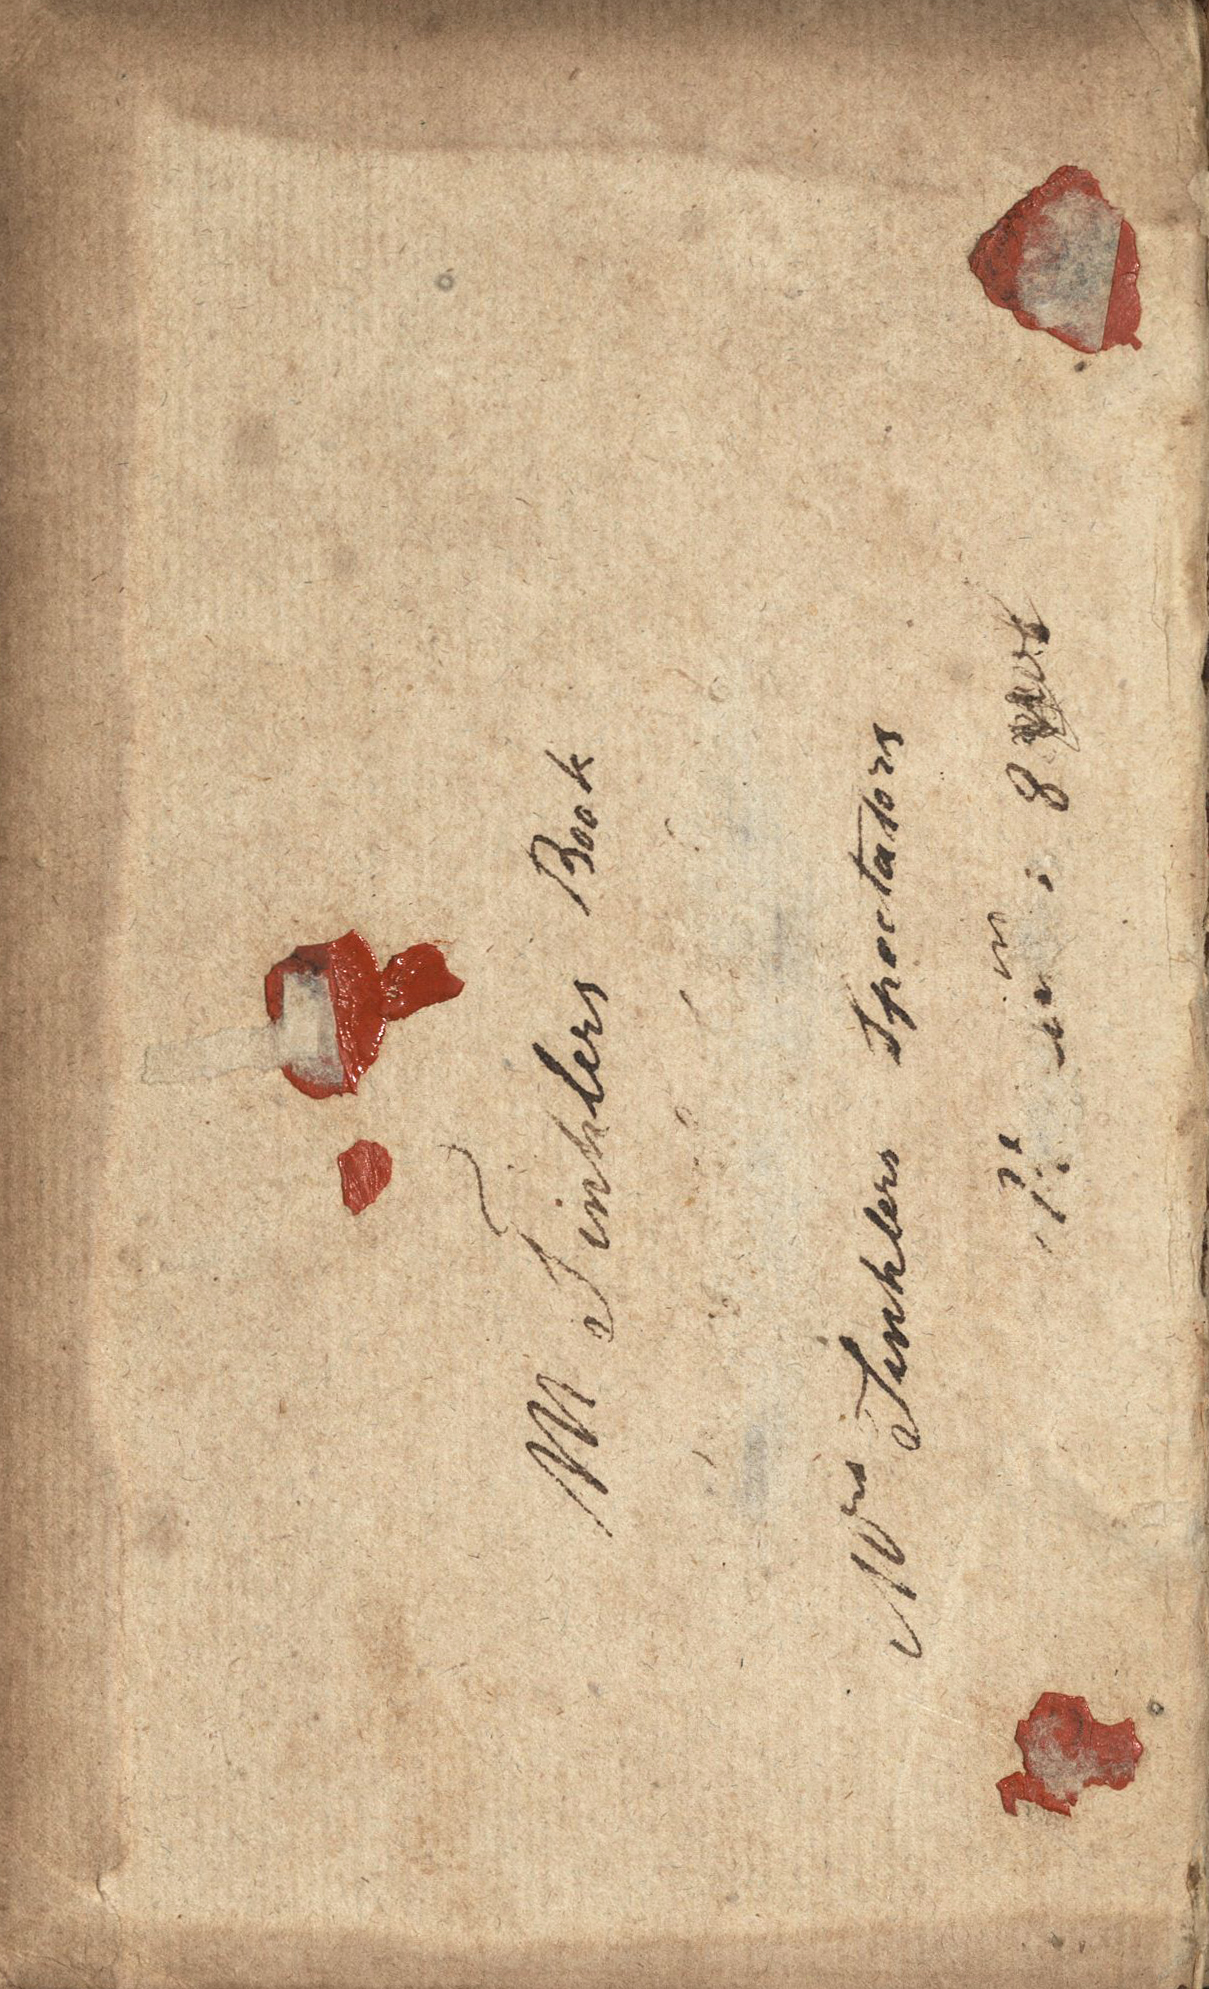 M Tinklers Book
Mrs Tinklers Spectators
in : 8 vols